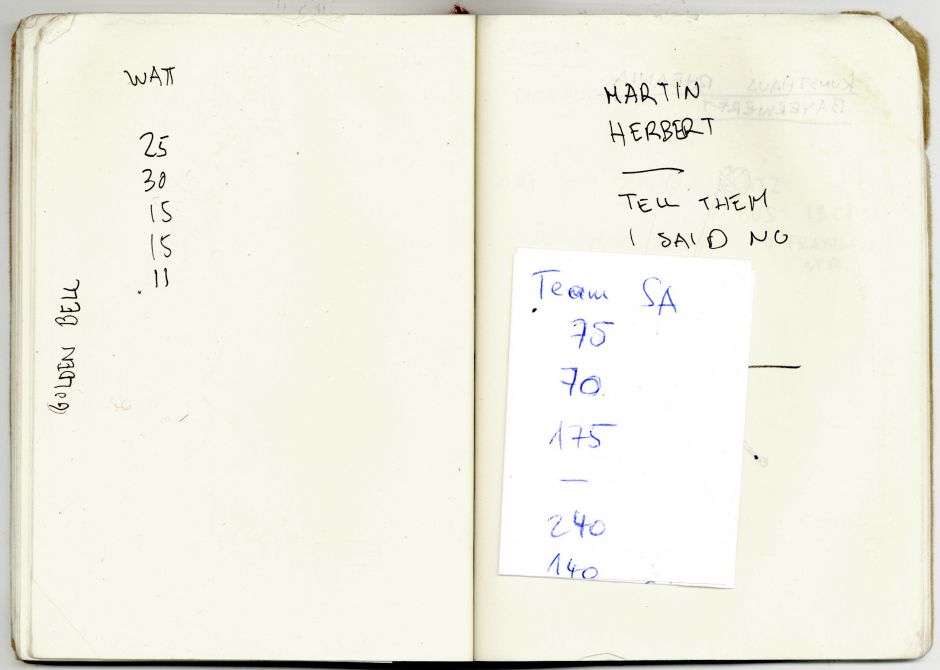 WATT
25
30
15
15
11
GOLDEN BELL
MARTIN
HERBERT
—
TELL THEM
I SAID NO
Team SA
75
70
175
—
240
140